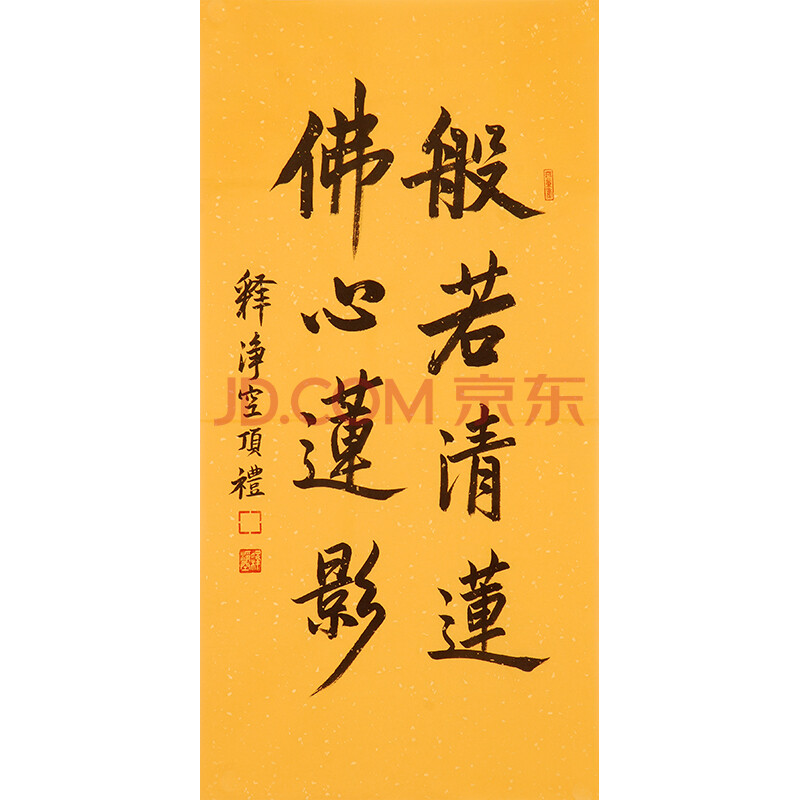 般若清蓮
佛心蓮影
释淨空頂禮
JD.COM 京东